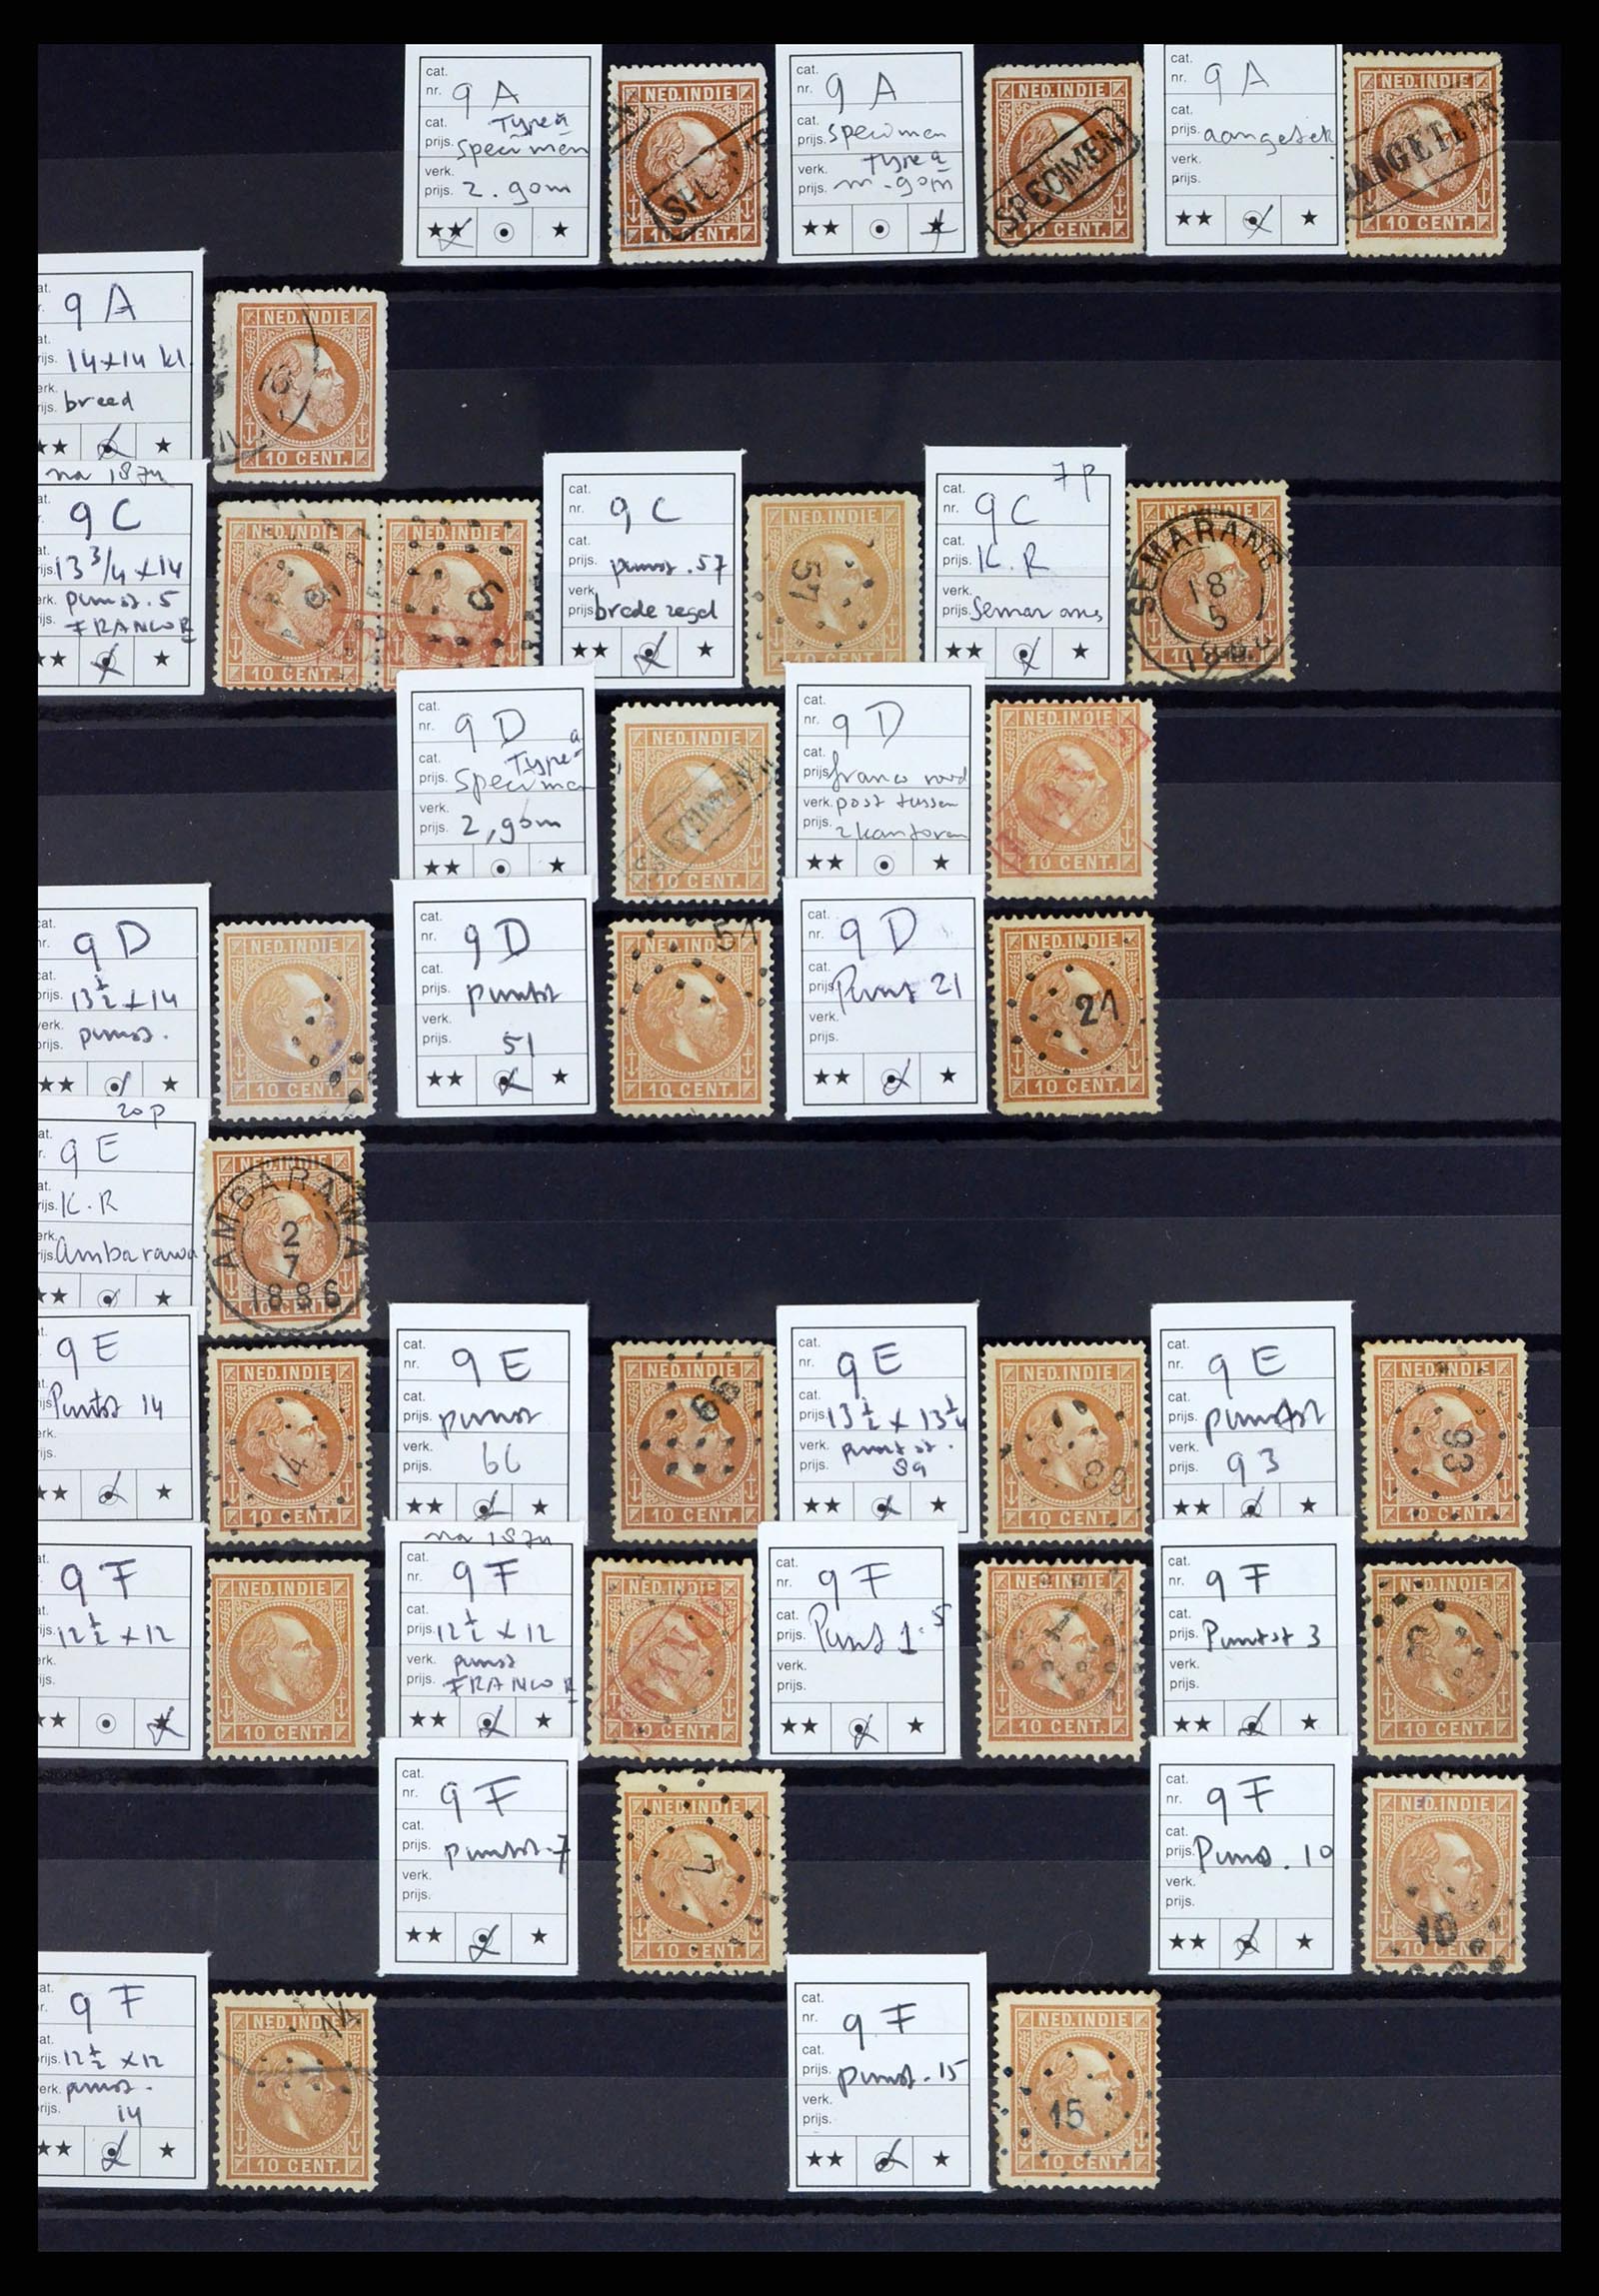 cat.
nr. 9 A
cat. Type a
prijs. Specimen
verk.
prijs. z. gom
NED. INDIE
10 CENT.
cat.
nr. 9 A
cat.
prijs. Specimen
verk. Type a
prijs. m. gom
NED. INDIE
SPECIMEN
10 CENT.
cat.
nr. 9 A
cat.
prijs. aangetek
verk.
prijs.
NED. INDIE
AANGETEEK
10 CENT.
9 A
14x14 kl.
breed
NED. INDIE
10 CENT.
na 1874
9 C
13 3/4 x 14
punst. 5
FRANCO R
NED. INDIE
5
10 CENT.
NED. INDIE
5
10 CENT.
cat.
nr. 9 C
cat.
prijs. punst. 57
verk.
prijs. brede zegel
NED. INDIE
57
10 CENT.
7 p
cat.
nr. 9 C
cat.
prijs. K.R
verk.
prijs. Semarang
SEMARANG
18
5
cat.
nr. 9 D
cat. Type a
prijs. Specimen
verk.
prijs. z, gom
NED. INDIE
SPECIMEN
10 CENT.
cat.
nr. 9 D
cat.
prijs. franco rood
verk. post tussen
prijs. 2 kantoren
NED. INDIE
10 CENT.
9 D
13 1/2 x 14
punst.
NED. INDIE
10 CENT.
cat.
nr. 9 D
cat.
prijs. puntst
verk.
prijs. 51
NED. INDIE
51
10 CENT.
cat.
nr. 9 D
cat.
prijs. Punst 21
verk.
prijs.
NED. INDIE
21
10 CENT.
20 p
9 E
K.R
Ambarawa
NED. INDIE
AMBARAWA
2
7
1886
10 CENT.
9 E
Puntst 14
NED. INDIE
14
10 CENT.
cat.
nr. 9 E
cat.
prijs. punst
verk.
prijs. 66
NED. INDIE
66
10 CENT.
cat.
nr. 9 E
cat.
prijs. 13 1/2 x 13 1/4
verk. puntst.
prijs. 89
NED. INDIE
89
10 CENT.
cat.
nr. 9 E
cat.
prijs. puntst
verk.
prijs. 93
NED. INDIE
93
10 CENT.
9 F
12 1/2 x 12
NED. INDIE
10 CENT.
na 1874
cat.
nr. 9 F
cat.
prijs. 12 1/2 x 12
verk. punst
prijs. FRANCO R
NED. INDIE
FRANCO
10 CENT.
cat.
nr. 9 F
cat.
prijs. Punst 1.5
verk.
prijs.
1
10 CENT.
cat.
nr. 9 F
cat.
prijs. Puntst 3
verk.
prijs.
NED. INDIE
3
10 CENT.
cat.
nr. 9 F
cat.
prijs. puntst. 7
verk.
prijs.
NED. INDIE
7
10 CENT.
cat.
nr. 9 F
cat.
prijs. Punst. 10
verk.
prijs.
NED. INDIE
10
9 F
12 1/2 x 12
punst.
14
NED. INDIE
14
10 CENT.
cat.
nr. 9 F
cat.
prijs. punst. 15
verk.
prijs.
NED. INDIE
15
10 CENT.